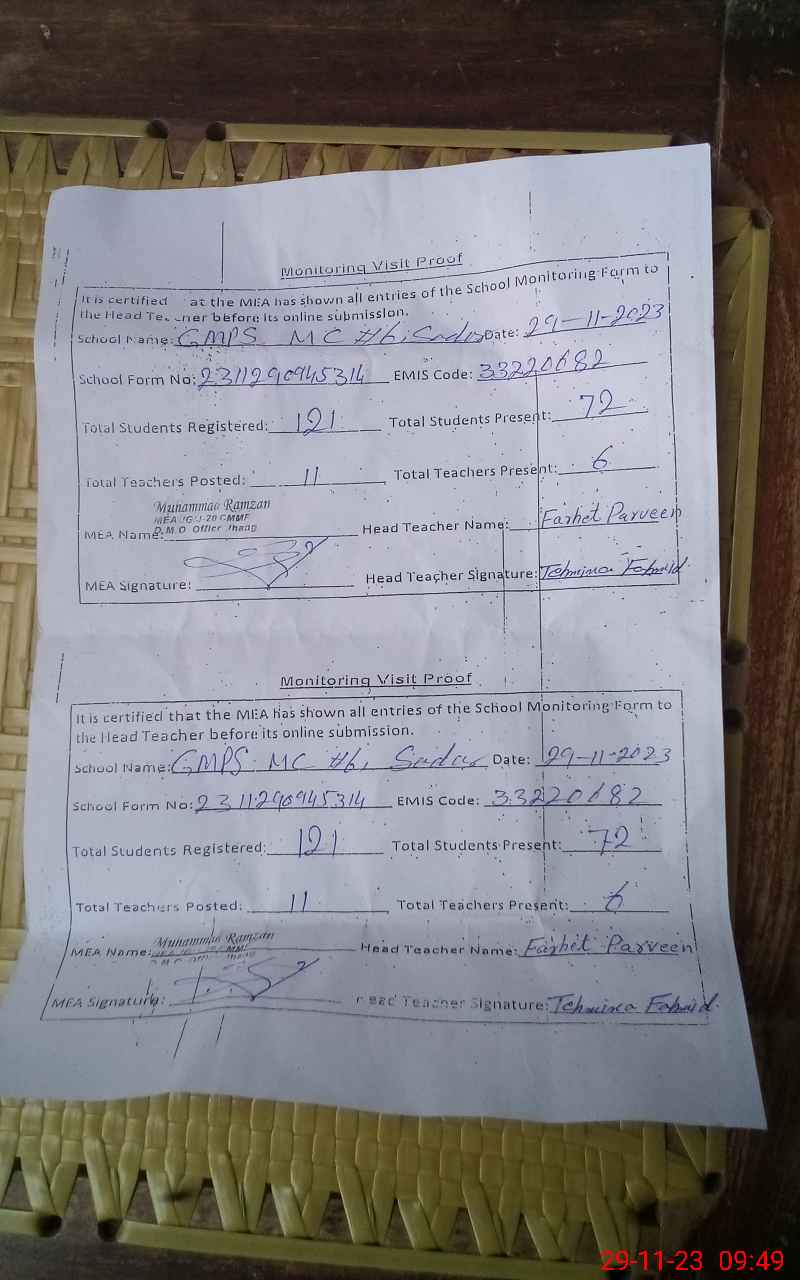 Monitoring Visit Proof
It is certified at the MEA has shown all entries of the School Monitoring Form to
the Head Te ner before its online submission.
School Name: GMPS MC #6, Sadar Date: 29-11-2023
School Form No: 2311290945314 EMIS Code: 33220682
Total Students Registered: 121 Total Students Present: 72
Total Teachers Posted: 11 Total Teachers Present: 6
Muhammad Ramzan
D.M.O Office Jhang
MEA Name: Head Teacher Name: Farhet Parveen
MEA Signature: Head Teacher Signature: Tehmina Fahmid
Monitoring Visit Proof
It is certified that the MEA has shown all entries of the School Monitoring Form to
the Head Teacher before its online submission.
School Name: GMPS MC #6, Sadar Date: 29-11-2023
School Form No: 2311290945314 EMIS Code: 33220682
Total Students Registered: 121 Total Students Present: 72
Total Teachers Posted: 11 Total Teachers Present: 6
Muhammad Ramzan
MEA Name: Head Teacher Name: Farhet Parveen
MEA Signature: Head Teacher Signature: Tehmina Fahmid
29-11-23 09:49